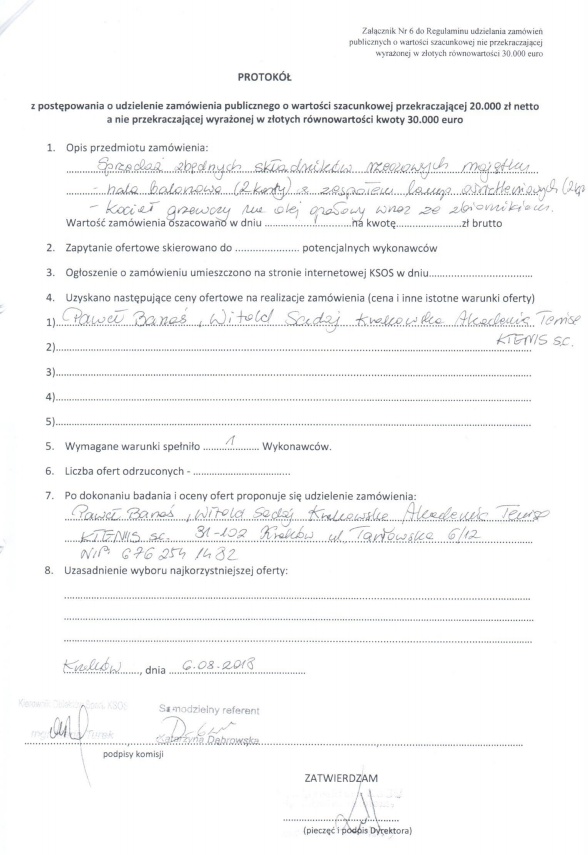 Załącznik Nr 6 do Regulaminu udzielania zamówień
publicznych o wartości szacunkowej nie przekraczającej
wyrażonej w złotych równowartości 30.000 euro
PROTOKÓŁ
z postępowania o udzielenie zamówienia publicznego o wartości szacunkowej przekraczającej 20.000 zł netto
a nie przekraczającej wyrażonej w złotych równowartości kwoty 30.000 euro
1. Opis przedmiotu zamówienia:
Sprzedaż zbędnych składników rzeczowych majątku
- hala balonowa (2 korty) z zespołem lamp oświetleniowych
- Kocioł grzewczy na olej opałowy wraz ze zbiornikiem.
Wartość zamówienia oszacowano w dniu ........................na kwotę..................zł brutto
2. Zapytanie ofertowe skierowano do ...................... potencjalnych wykonawców
3. Ogłoszenie o zamówieniu umieszczono na stronie internetowej KSOS w dniu..............................
4. Uzyskano następujące ceny ofertowe na realizacje zamówienia (cena i inne istotne warunki oferty)
1) Paweł Banaś, Witold Sadzj Krakowska Akademia Tenisa
KTENIS s.c.
2)
3)
4)
5)
5. Wymagane warunki spełniło ....1.... Wykonawców.
6. Liczba ofert odrzuconych - ..............................
7. Po dokonaniu badania i oceny ofert proponuje się udzielenie zamówienia:
Paweł Banaś, Witold Sadzj Krakowska Akademia Tenisa
KTENIS sc. 31-102 Kraków ul Tarłowska 6/12
NIP. 676 254 1482
8. Uzasadnienie wyboru najkorzystniejszej oferty:
Kraków, dnia 6.08.2018
Kierownik KSOS
Samodzielny referent
mgr Turek
Katarzyna Dąbrowska
podpisy komisji
ZATWIERDZAM
(pieczęć i podpis Dyrektora)